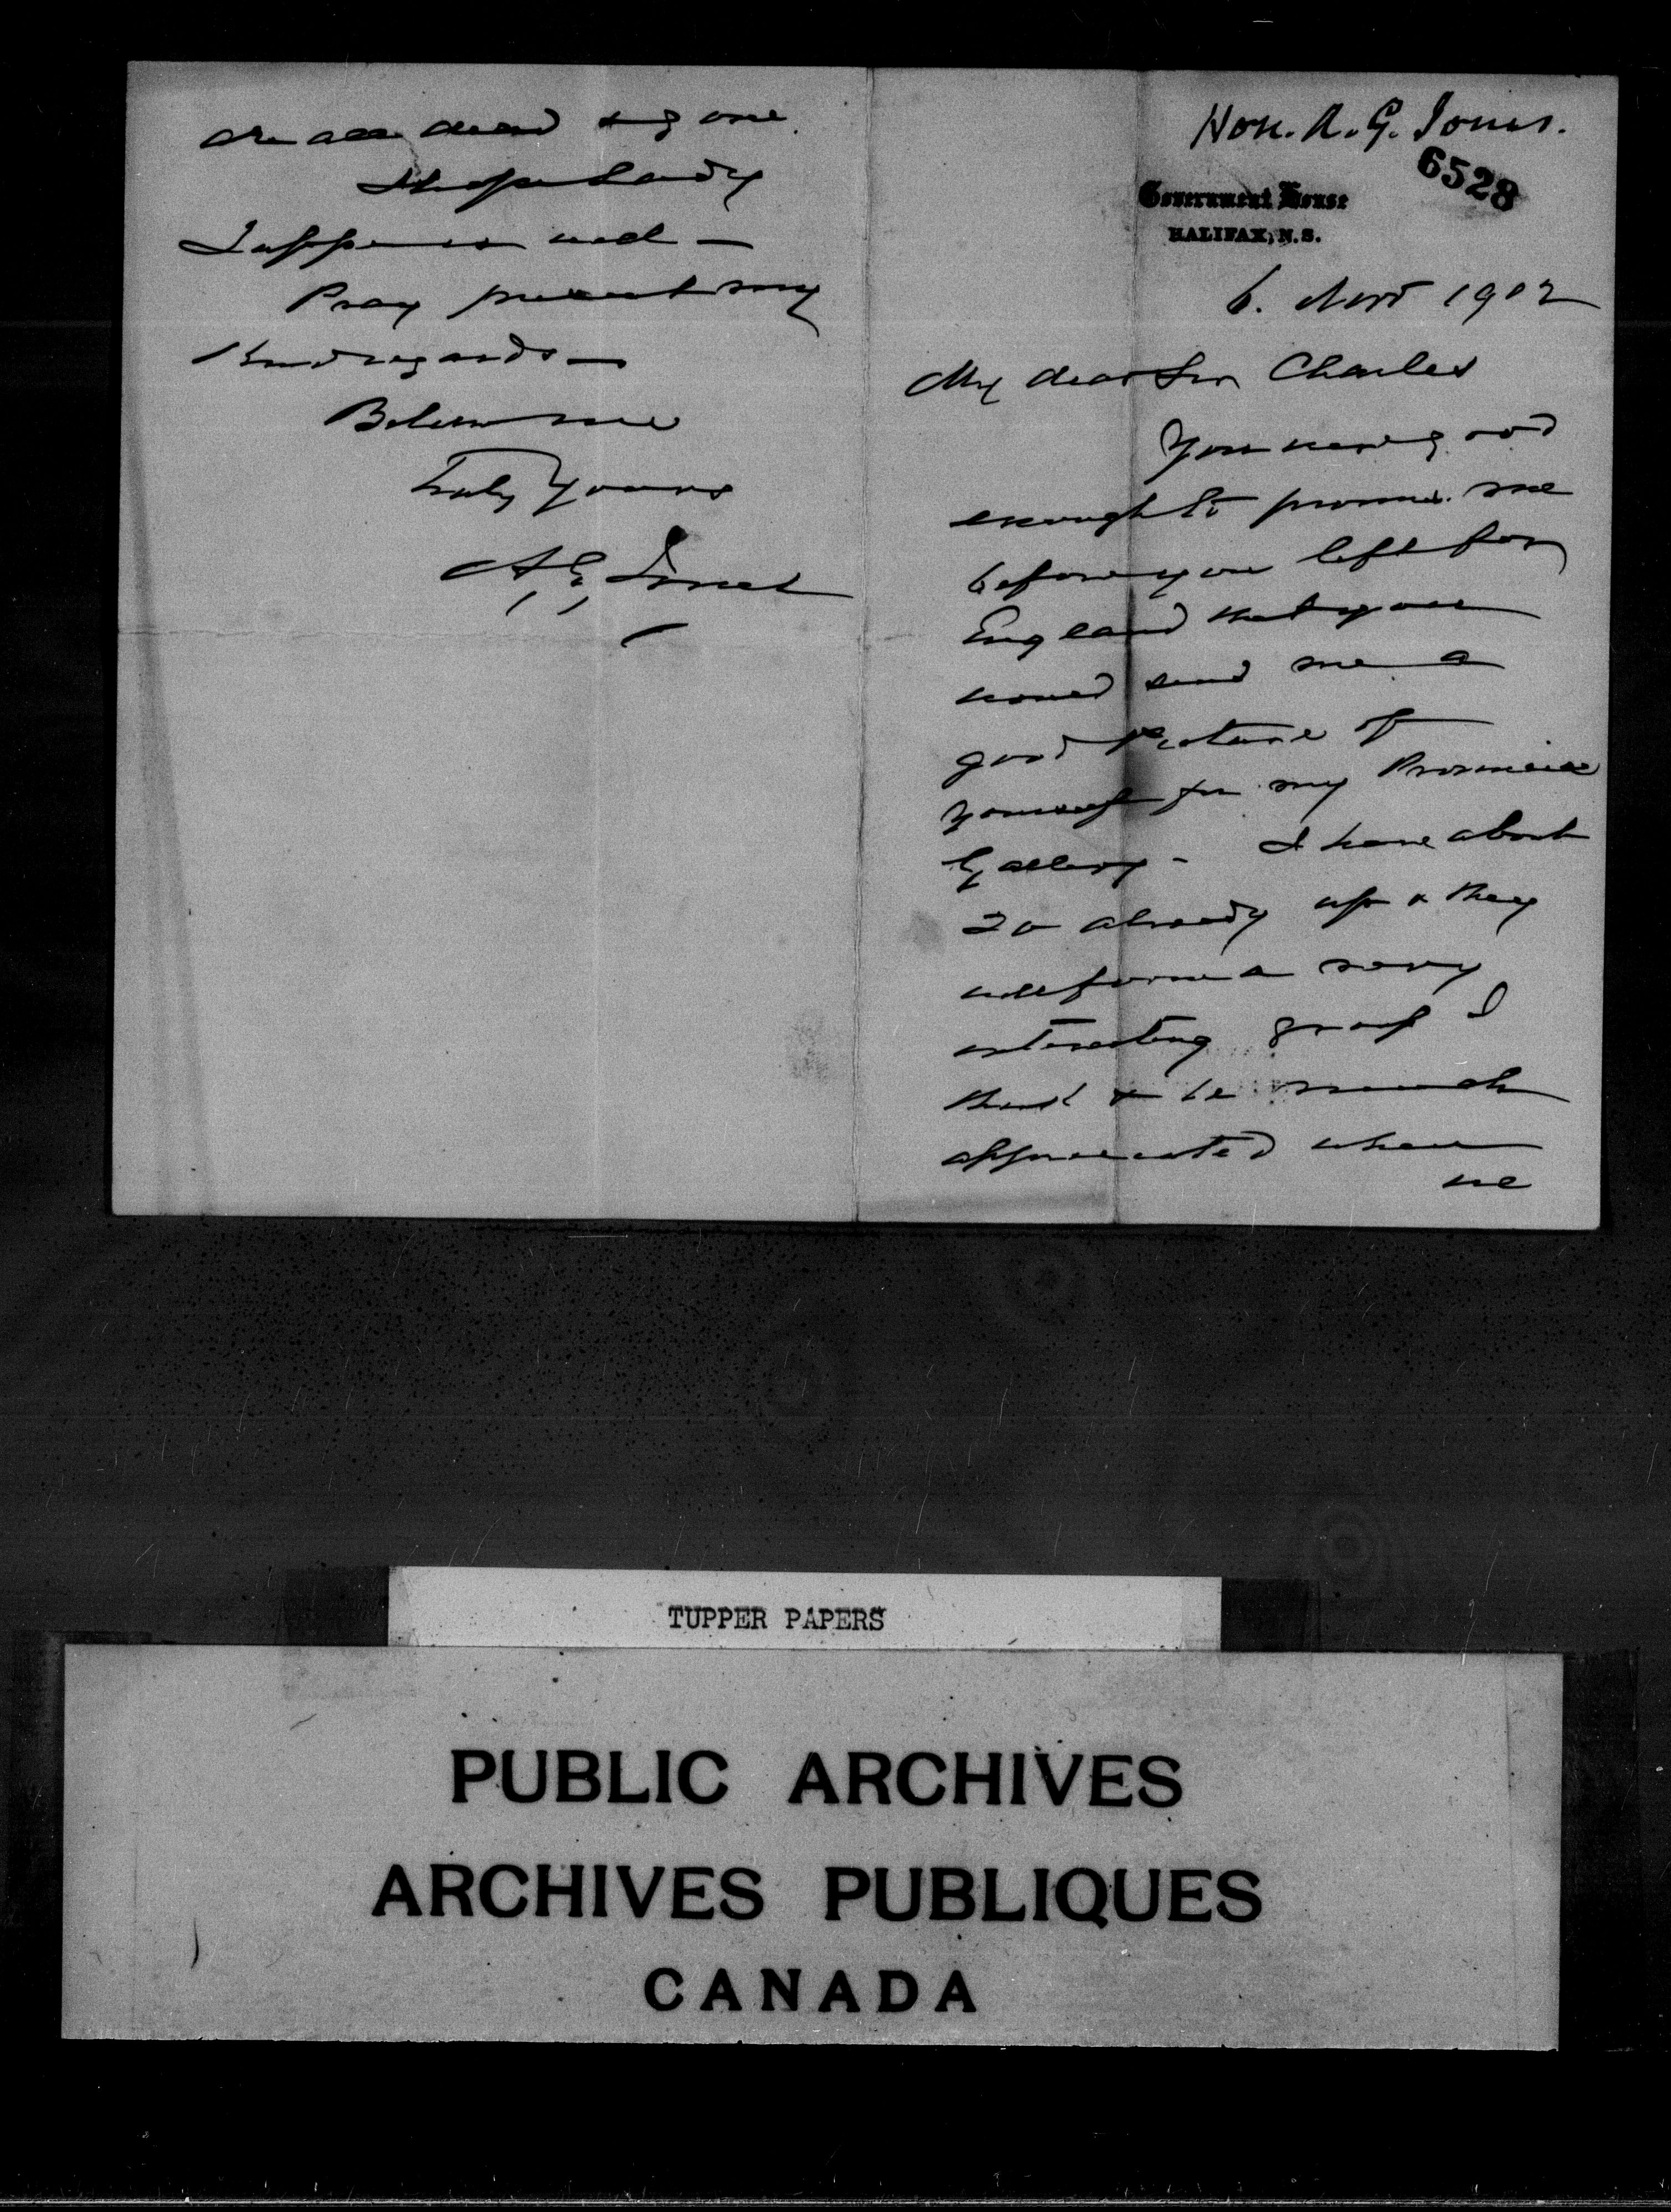 Hon. A. G. Jones.
6528
Government House
HALIFAX, N.S.
6. Nov 1902
My dear Sir Charles
You were good
enough to promise me
before you left for
England that you
would send me a
good picture of
yourself for my Provincial
Gallery - I have about
20 already up & they
will form a very
interesting group I
think & be much
appreciated when
we
are all dead & gone.
I hope Lady
Tupper is well -
Pray present my
Kind regards -
Believe me
Truly Yours
A. G. Jones
TUPPER PAPERS
PUBLIC ARCHIVES
ARCHIVES PUBLIQUES
CANADA